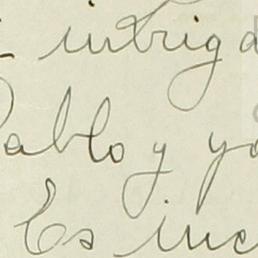 intriga
Pablo y yo
Es inc